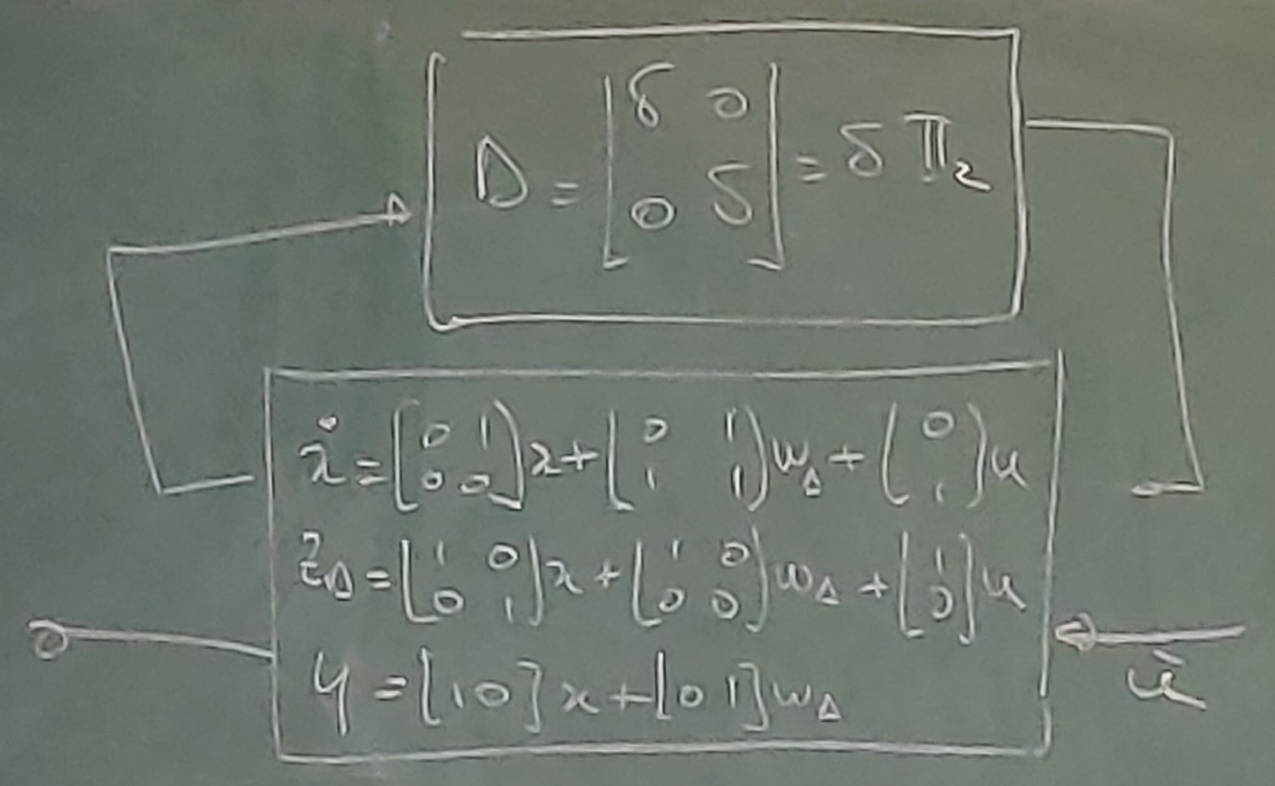 Δ = [δ 0; 0 δ] = δ 𝕀₂
ẋ = [0 1; 0 0] x + [0 1; 1 1] w_Δ + [0; 1] u
z_Δ = [1 0; 0 1] x + [1 0; 0 0] w_Δ + [1; 0] u
y = [1 0] x + [0 1] w_Δ
u